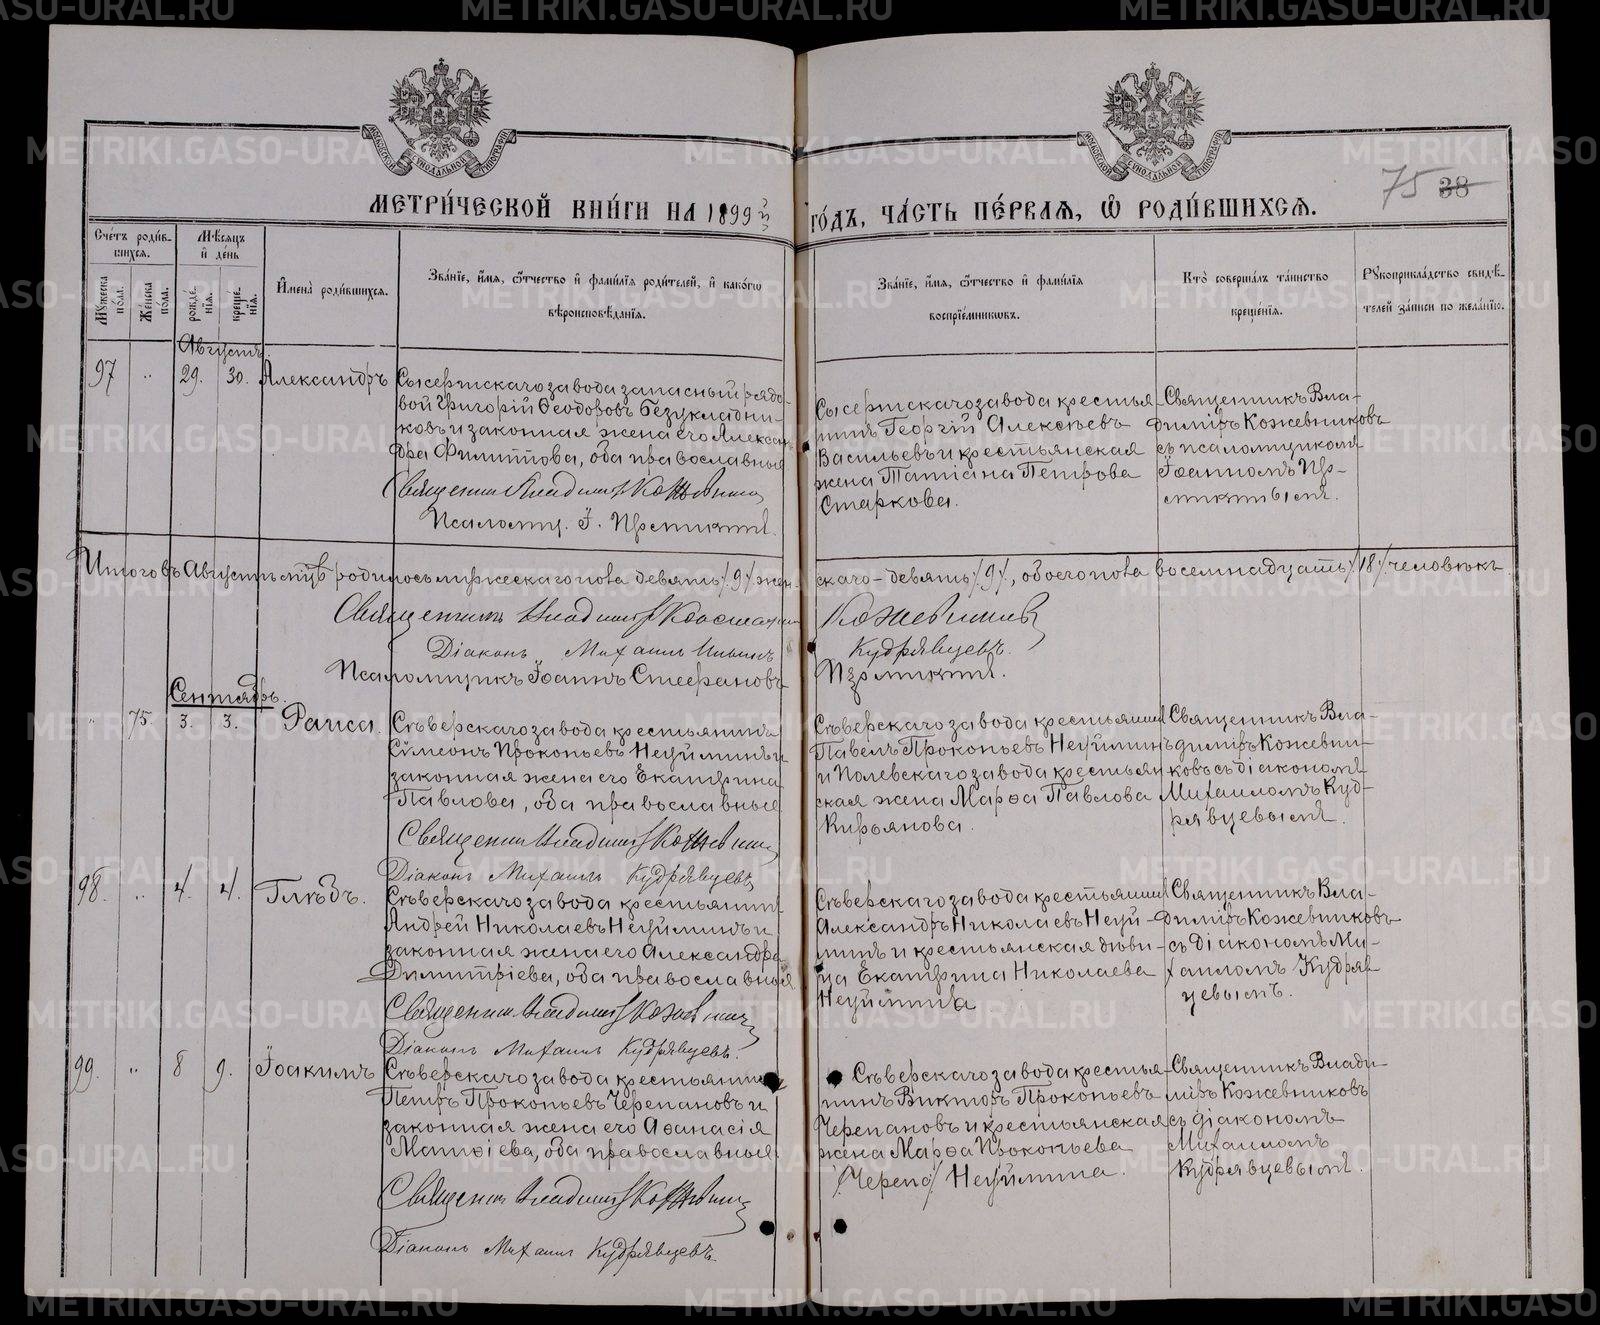 METRIKI.GASO-URAL.RU
МЕТРИ́ЧЕСКОЙ КНИ́ГИ НА 1899й
ГО́ДЪ, ЧА́СТЬ ПЕ́РВАѦ, Ѿ РОДИ́ВШИХСѦ.
75 38
Сче́тъ роди́в-
шихсѧ.
Мѣ́сѧцъ
и҆ де́нь
И҆мена̀ роди́вшихсѧ.
Зва́нїе, и҆́мѧ, ѻ҆́тчество и҆ фами́лїѧ роди́телей, и҆ како́гѡ
вѣроисповѣ́данїѧ.
Зва́нїе, и҆́мѧ, ѻ҆́тчество и҆ фами́лїѧ
воспрїе́мникѡвъ.
Кто̀ соверша́лъ та́инство
креще́нїѧ.
Рꙋкоприкла́дство свидѣ́-
телей за́писи по жела́нїю.
Мꙋ́жеска
по́ла.
Же́нска
по́ла.
рожде́-
нїѧ.
креще́-
нїѧ.
Августъ.
97
"
29.
30.
Александръ
Сысертскаго завода запасный рядо-
вой Григорій Ѳеодоровъ Безукладни-
ковъ и законная жена его Алексан-
дра Филиппова, оба православные
Священник Владимір Кожевников
Псаломщ. І.
Сысертскаго завода крестья-
нинъ Георгій Алексѣевъ
Васильевъ и крестьянская
жена Татіана Петрова
Старкова.
Священникъ Вла-
диміръ Кожевниковъ
съ псаломщикомъ
Іоанномъ
Итого въ Августѣ мцѣ родилось мужескаго пола девять /9/ жен-
скаго – девять /9/, обоего пола восемнадцать /18/ человѣкъ.
Священникъ Владимір
Кожевников
Діаконъ Михаилъ
Кудрявцевъ.
Псаломщикъ Іоаннъ Стефановъ
Сентябрь.
"
75.
3.
3.
Раиса.
Сѣверскаго завода крестьянинъ
Сѵмеонъ Прокопьевъ Неуйминъ и
законная жена его Екатерина
Павлова, оба православные
Священник Владимір Кожевников
Діаконъ Михаилъ Кудрявцевъ
Сѣверскаго завода крестьянинъ
Павелъ Прокопьевъ Неуйминъ
и Полевскаго завода крестьян-
ская жена Марѳа Павлова
Кирьянова.
Священникъ Вла-
диміръ Кожевни-
ковъ съ діакономъ
Михаиломъ Куд-
рявцевымъ.
98.
"
4.
4.
Глѣбъ.
Сѣверскаго завода крестьянинъ
Андрей Николаевъ Неуйминъ и
законная жена его Александра
Димитріева, оба православные
Священник Владимір Кожевников
Діаконъ Михаилъ Кудрявцевъ.
Сѣверскаго завода крестьянинъ
Александръ Николаевъ Неуй-
минъ и крестьянская дѣви-
ца Екатерина Николаева
Неуймина
Священникъ Вла-
диміръ Кожевниковъ
съ діакономъ Ми-
хаиломъ Кудряв-
цевымъ.
99.
"
8
9.
Іоакимъ
Сѣверскаго завода крестьянинъ
Петръ Прокопьевъ Черепановъ и
законная жена его Аѳанасія
Матѳіева, оба православные
Священник Владимір Кожевников
Діаконъ Михаилъ Кудрявцевъ.
Сѣверскаго завода крестья-
нинъ Викторъ Прокопьевъ
Черепановъ и крестьянская
жена Марѳа Прокопьева
/Черепо/ Неуймина.
Священникъ Влади-
міръ Кожевниковъ
съ діакономъ
Михаиломъ
Кудрявцевымъ.